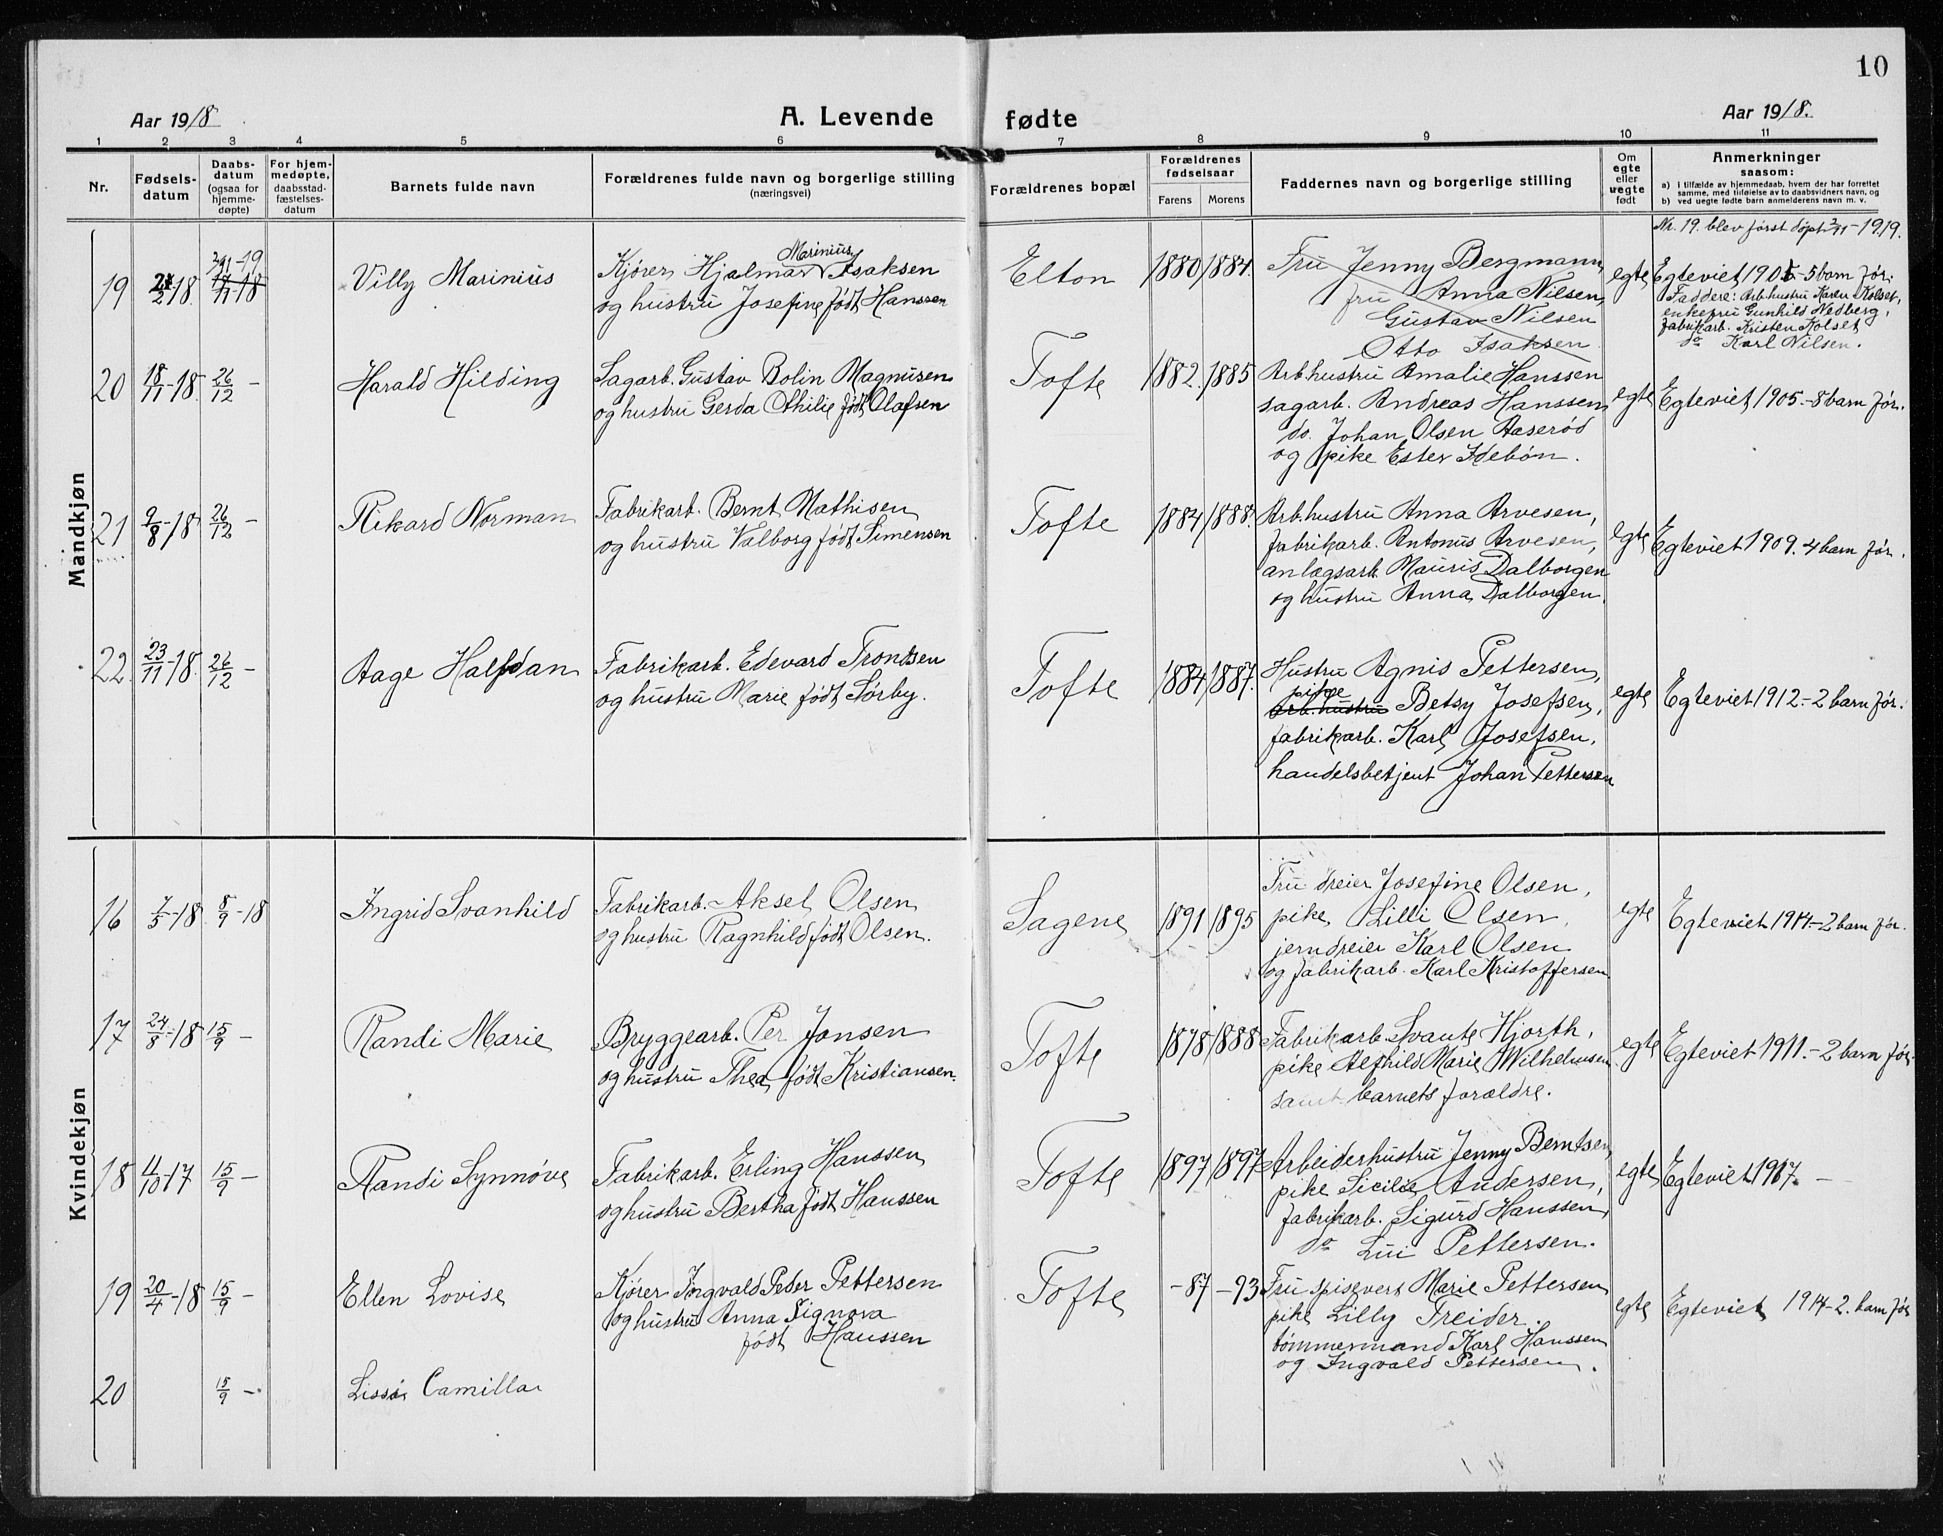 10
Aar 1918
A. Levende fødte
Aar 1918.
1 2 3 4 5 6 7 8 9 10 11
Nr.
Fødsels-
datum
Daabs-
datum
(ogsaa for
hjemme-
døpte)
For hjem-
medøpte,
daabsstad-
fæstelses-
datum
Barnets fulde navn
Forældrenes fulde navn og borgerlige stilling
(næringsvei)
Forældrenes bopæl
Forældrenes
fødselsaar
Farens Morens
Faddernes navn og borgerlige stilling
Om
egte
eller
uegte
født
Anmerkninger
saasom:
a) i tilfælde av hjemmedaab, hvem der har forrettet
samme, med tilføielse av to daabsvidners navn, og
b) ved uegte fødte barn anmelderens navn m. v.
Mandkjøn
Nr. 19. blev først døpt 2/11-1919.
19
2/2-18
2/11-19
17/11-18
Villy Marinius
Kjører Hjalmar Marinius Isaksen
og hustru Josefine født Hanssen
Elton
1880 1884.
Fru Jenny Bergmann,
fru Anna Nilsen,
Gustav Nilsen
Otto Isaksen.
egte
Egteviet 1905-5 barn før.
Faddere: Arb.hustru Karen Kolset,
enkefru Gunhild Nedberg,
fabrikarb. Kristen Kolset
do Karl Nilsen.
20
18/11-18.
26/12 -
Harald Hilding
Sagarb. Gustav Bolin Magnusen
og hustru Gerda Othilie født Olafsen
Tofte
1882. 1885
Arb.hustru Amalie Hanssen
sagarb. Andreas Hanssen
do. Johan Olsen Aaserød
og pike Ester Idebøn.
egte
Egteviet 1905.-8 barn før.
21
9/8-18
26/12 -
Rikard Norman
Fabrikarb. Bernt Mathisen
og hustru Valborg født Simensen
Tofte
1884 1888.
Arb.hustru Anna Arvesen,
fabrikarb. Antonus Arvesen,
anlægsarb. Mauris Dalborgen
og hustru Anna Dalborgen.
egte
Egteviet 1909. 4 barn før.
22.
23/11-18.
26/12 -
Aage Halfdan
Fabrikarb. Edevard Trondsen
og hustru Marie født Sørby.
Tofte
1884 1887.
Hustru Agnis Pettersen,
pike
arb.hustru Betsy Josefsen,
fabrikarb. Karl Josefsen,
handelsbetjent Johan Pettersen
egte
Egteviet 1912.-2 barn før.
Kvindekjøn
16
7/5-18.
8/9-18
Ingrid Svanhild
Fabrikarb. Aksel Olsen
og hustru Ragnhild født Olsen.
Sagene
1891 1895
Fru dreier Josefine Olsen,
pike Lilli Olsen,
jerndreier Karl Olsen
og fabrikarb. Karl Kristoffersen
egte
Egteviet 1914-2 barn før.
17
24/8-18
15/9 -
Randi Marie
Bryggearb. Per Jonsen
og hustru Thea født Kristiansen.
Tofte
1878 1888
Fabrikarb. Svante Hjorth,
pike Alfhild Marie Wilhelmsen
samt barnets forældre.
egte
Egteviet 1911.-2 barn før.
18
4/10-17
15/9 -
Randi Synnøve
Fabrikarb. Erling Hanssen
og hustru Bertha født Hanssen
Tofte
1897 1897
Arbeiderhustru Jenny Berntsen,
pike Sicilie Andersen,
fabrikarb. Sigurd Hanssen,
do Lui Pettersen.
egte
Egteviet 1917. -
19
20/4-18
15/9 -
Ellen Lovise
Kjører Ingvald Peder Pettersen
og hustru Anna Signora
født Hanssen
Tofte
-87 -93
Fru spisevert Marie Pettersen
pike Lilly Treider.
tømmermand Karl Hanssen
og Ingvald Pettersen.
egte
Egteviet 1914-2. barn før
20
15/9 -
Camilla